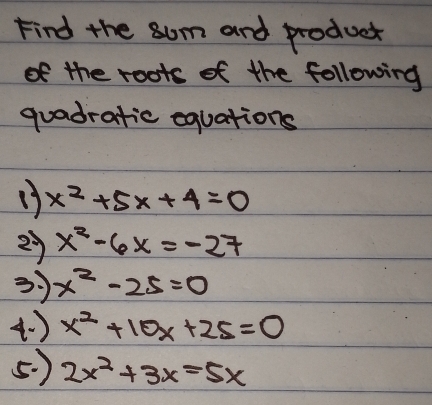 Find the sum and product
of the roots of the following
quadratic equations
1) x² + 5x + 4 = 0
2.) x² - 6x = -27
3.) x² - 25 = 0
4.) x² + 10x + 25 = 0
5.) 2x² + 3x = 5x